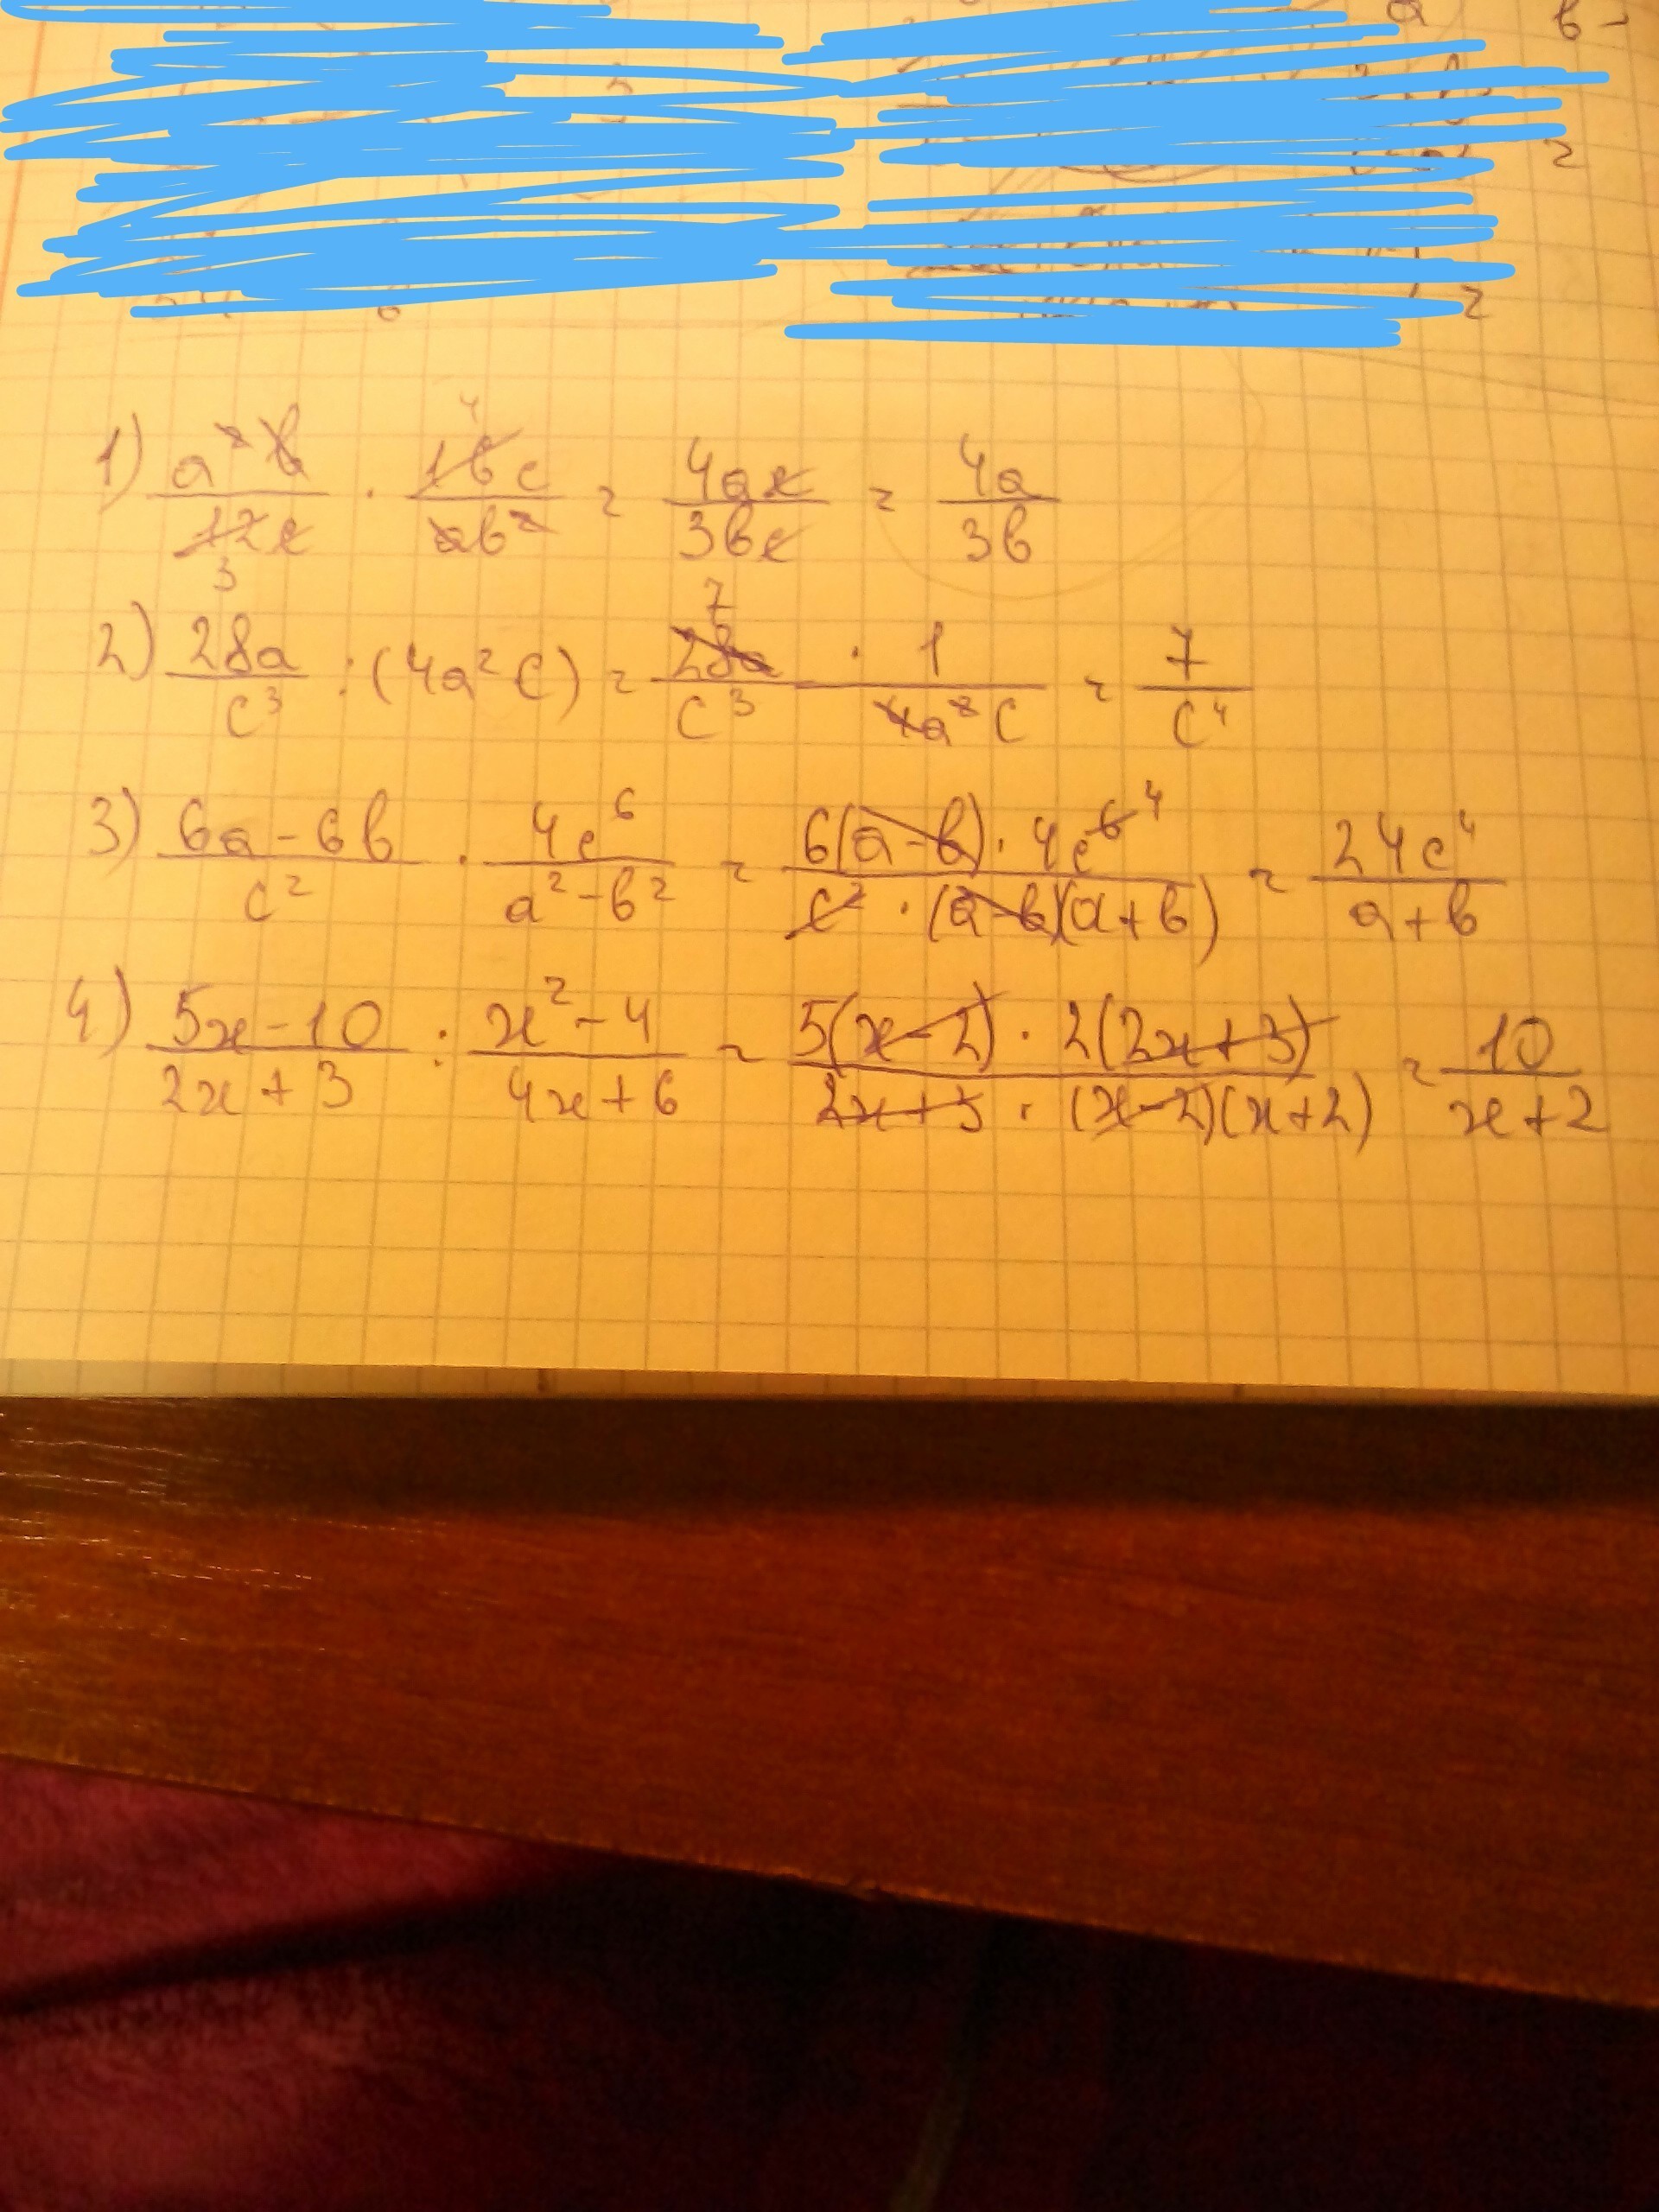 1) a²b/12c · 16c/ab² = 4ac/3bc = 4a/3b
2) 28a/c³ : (4a²c) = 28a/c³ · 1/4a²c = 7/c⁴
3) 6a-6b/c² · 4c⁶/a²-b² = 6(a-b)·4c⁶ ⁴/c²·(a-b)(a+b) = 24c⁴/a+b
4) 5x-10/2x+3 : x²-4/4x+6 = 5(x-2)·2(2x+3)/2x+3·(x-2)(x+2) = 10/x+2